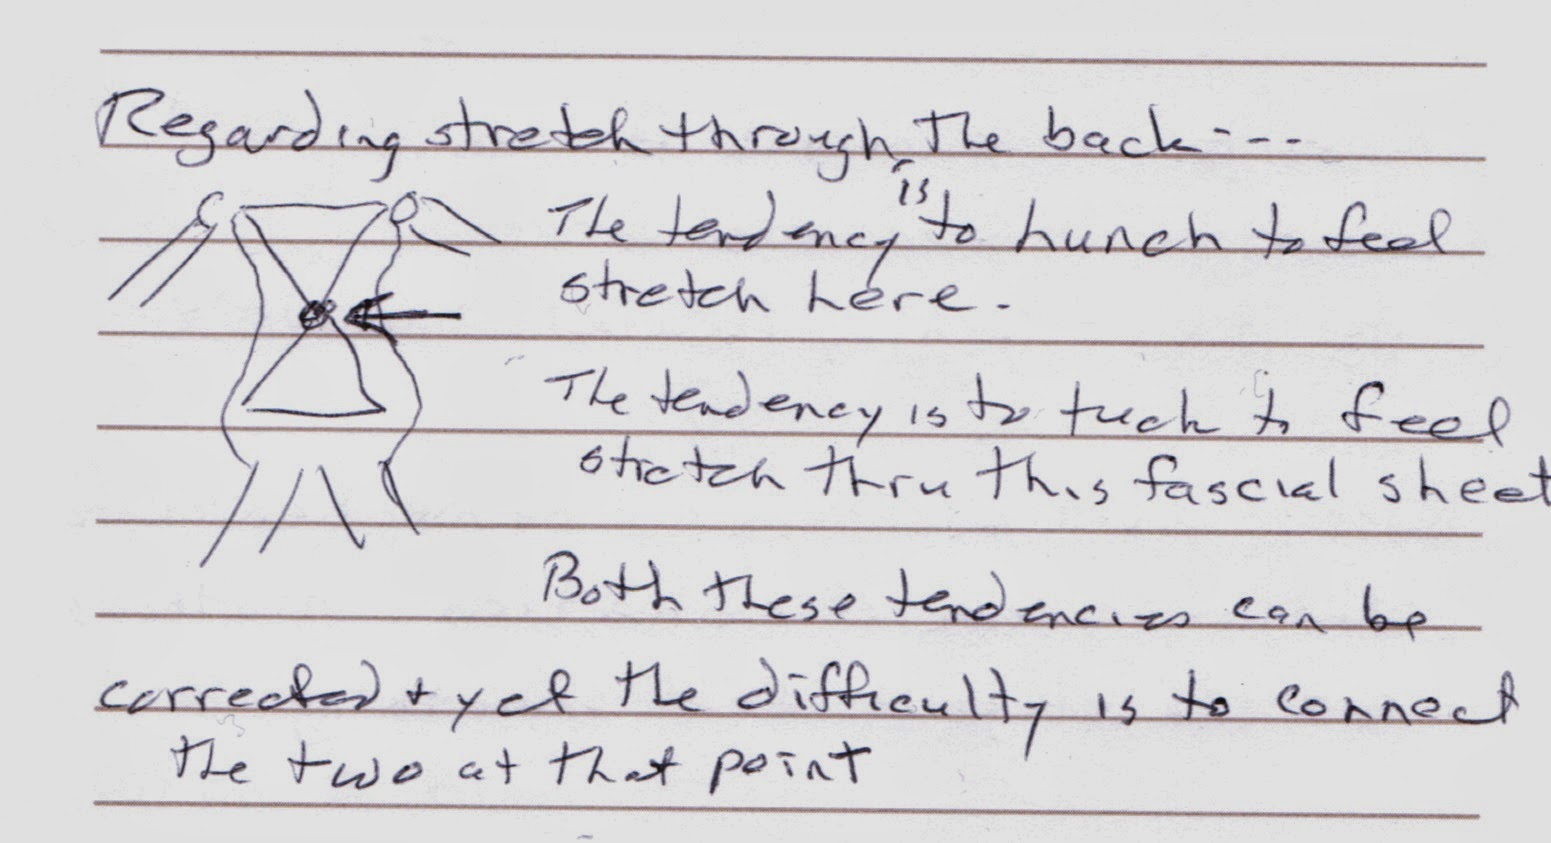 Regarding stretch through the back ---
The tendency is to hunch to feel
stretch here.
The tendency is to tuck to feel
stretch thru this fascial sheet
Both these tendencies can be
corrected + yet the difficulty is to connect
the two at that point